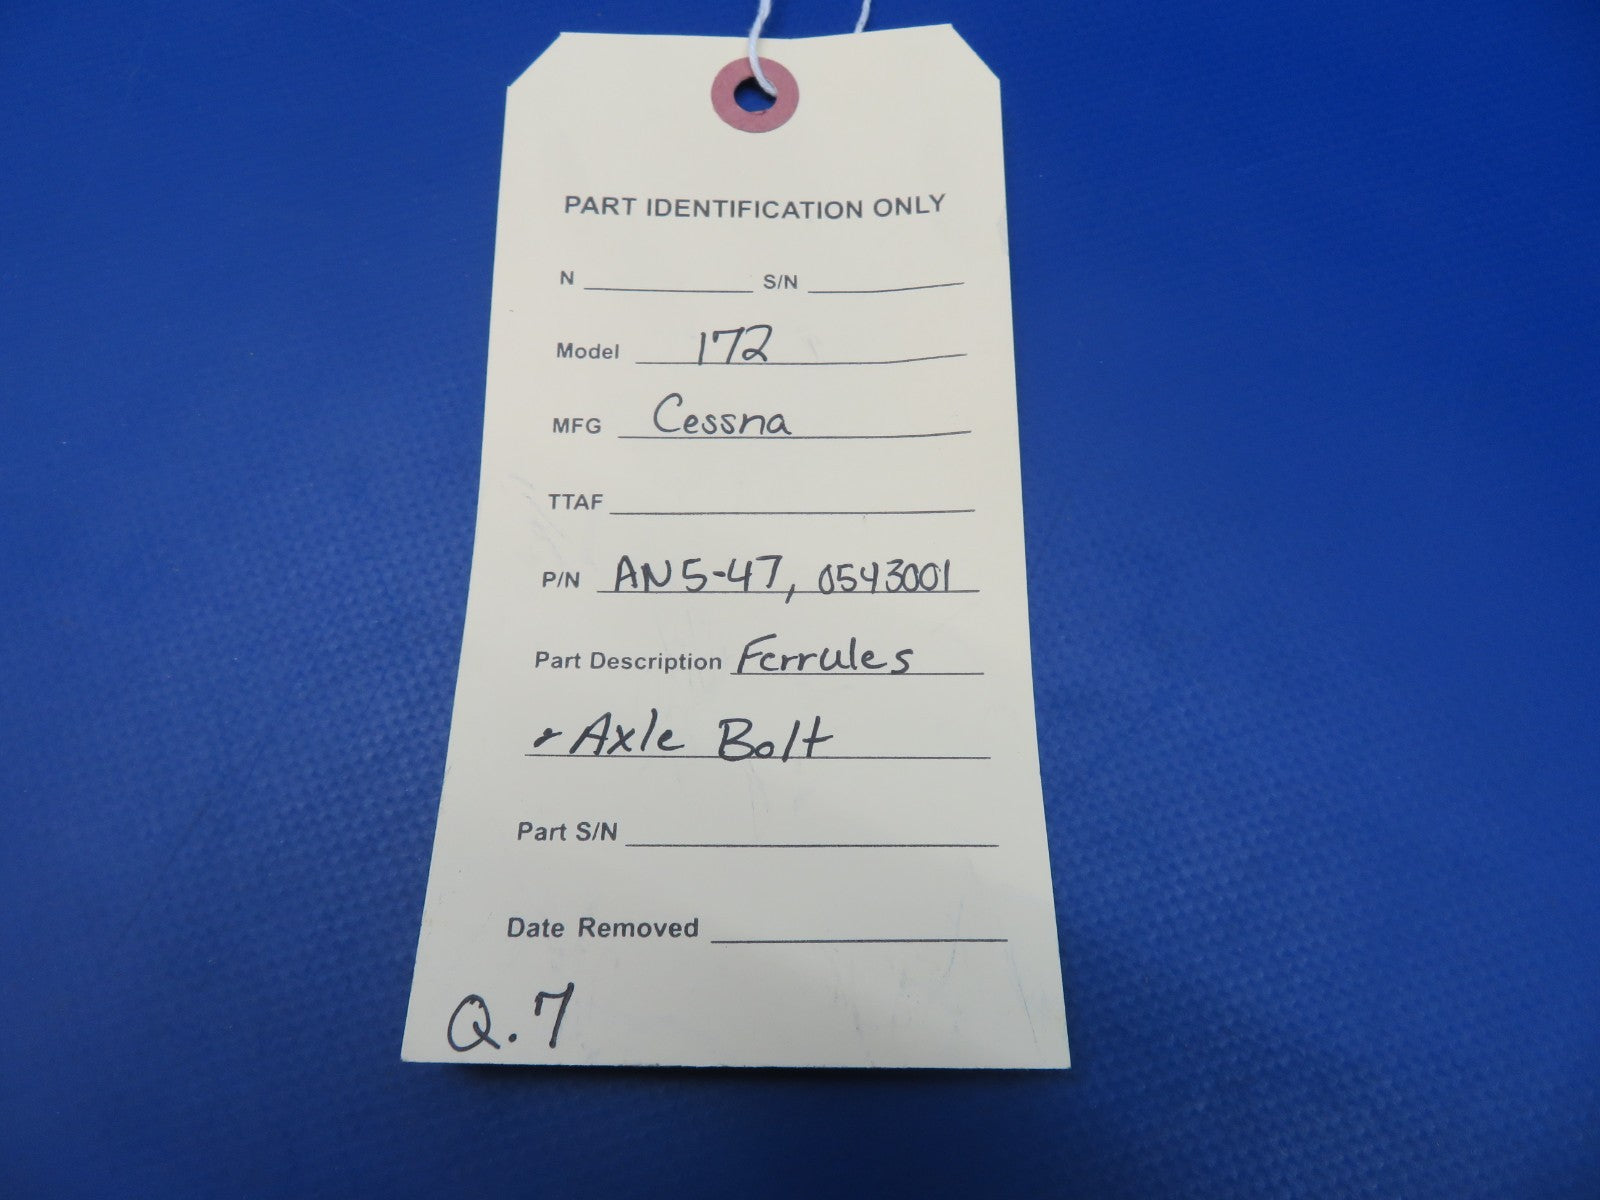 PART IDENTIFICATION ONLY
N S/N
Model 172
MFG Cessna
TTAF
P/N AN5-47, 0543001
Part Description Ferrules
& Axle Bolt
Part S/N
Date Removed
Q.7